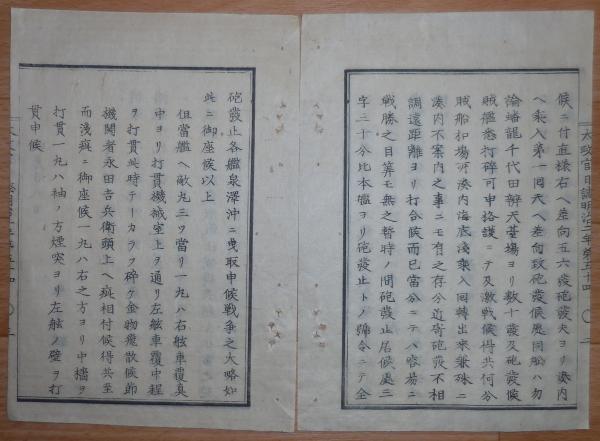 太政官日誌明治二年第五十四
候ニ付直樣右ヘ差向五六發砲發夫ヨリ湊内
ヘ乘入第一回天ヘ差向致砲發候處回船ハ勿
論蟠龍千代田辨天臺場ヨリ數十發及砲發候
賊艦悉打碎可申格護ニテ及激戰候得共何分
賊船打場所湊内海底淺乘入回轉出來兼殊ニ
湊内不案内之事ニモ有之存分近寄砲發不相
調遠距離ヨリ打合候而已當分ニテハ容易ニ
戰勝之目算モ無之暫時ノ間砲發止居候處三
字三十分比本艦ヨリ砲發止トノ號令ニテ全
砲發止各艦泉澤沖ニ曳取申候戰爭之大略如
此ニ御座候以上
但當艦ヘ敵丸三ツ當リ一丸ハ右舷車覆真
中ヨリ打貫機械室上ヲ通リ左舷車覆中程
ヲ打貫此時テーカラフ碎ケ金物飛散候節
機關者永田吉兵衛頭上ヘ疵相付候得共至
而淺疵ニ御座候一丸ハ右之方ヨリ中檣ヲ
打貫一丸ハ袖ノ方煙突ヨリ左舷ノ壁ヲ打
貫申候